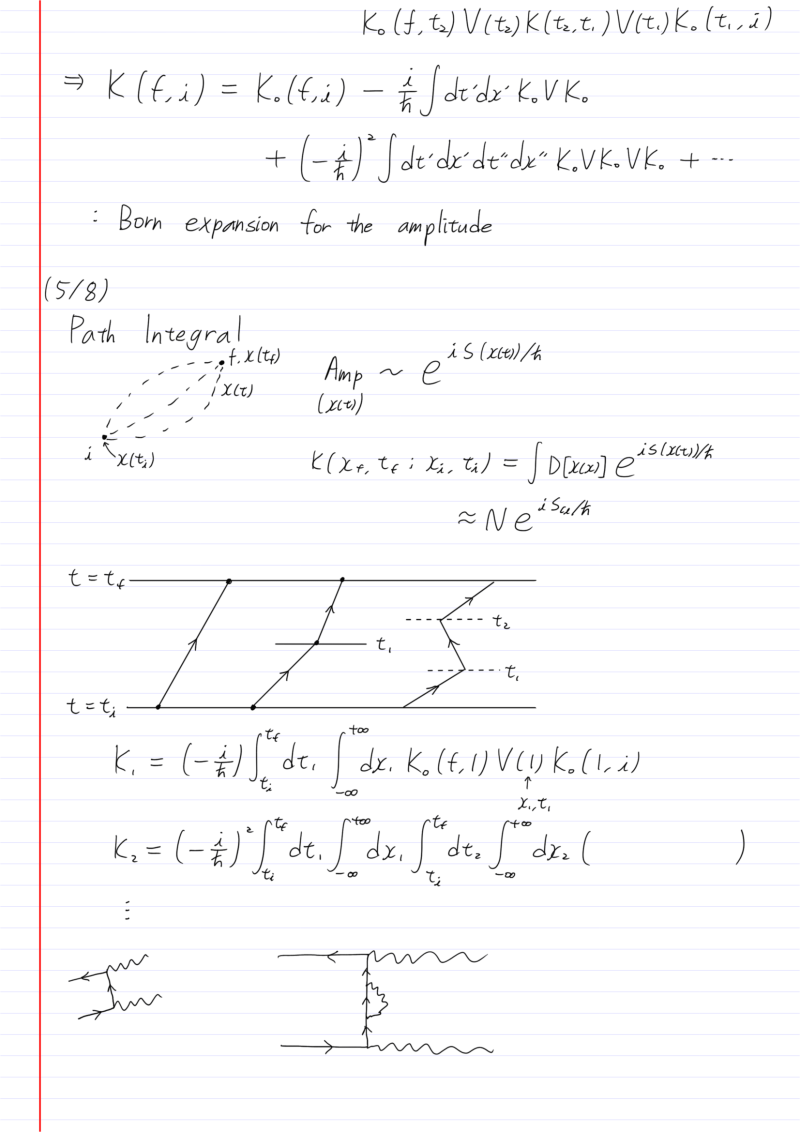 K₀(f,t₂)V(t₂)K(t₂,t₁)V(t₁)K₀(t₁,i)
⇒ K(f,i) = K₀(f,i) - i/ħ ∫dt'dx' K₀VK₀
+ (-i/ħ)² ∫dt'dx'dt''dx'' K₀VK₀VK₀ + ⋯
: Born expansion for the amplitude
(5/8)
Path Integral
f, x(t_f)
x(t)
i
x(t_i)
Amp ~ e^{iS(x(t))/ħ}
(x(t))
K(x_f, t_f ; x_i, t_i) = ∫D[x(x)] e^{iS(x(t))/ħ}
≈ N e^{iS_cl/ħ}
t = t_f
t₂
t₁
t₁
t = t_i
K₁ = (-i/ħ) ∫_{t_i}^{t_f} dt₁ ∫_{-∞}^{+∞} dx₁ K₀(f,1) V(1) K₀(1,i)
↑
x₁,t₁
K₂ = (-i/ħ)² ∫_{t_i}^{t_f} dt₁ ∫_{-∞}^{+∞} dx₁ ∫_{t_i}^{t_f} dt₂ ∫_{-∞}^{+∞} dx₂ ( )
⋮